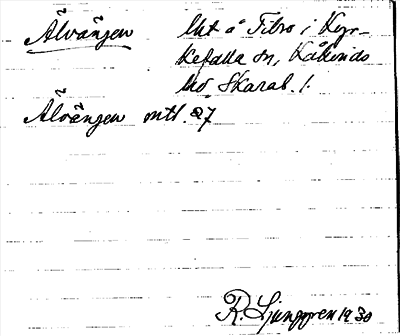 Älvängen lht å Tibro i Kyr-
kefalla sn, Kåkinds
hd Skarab. l.
Älvängen mtl. 27
R. Ljunggren 1930